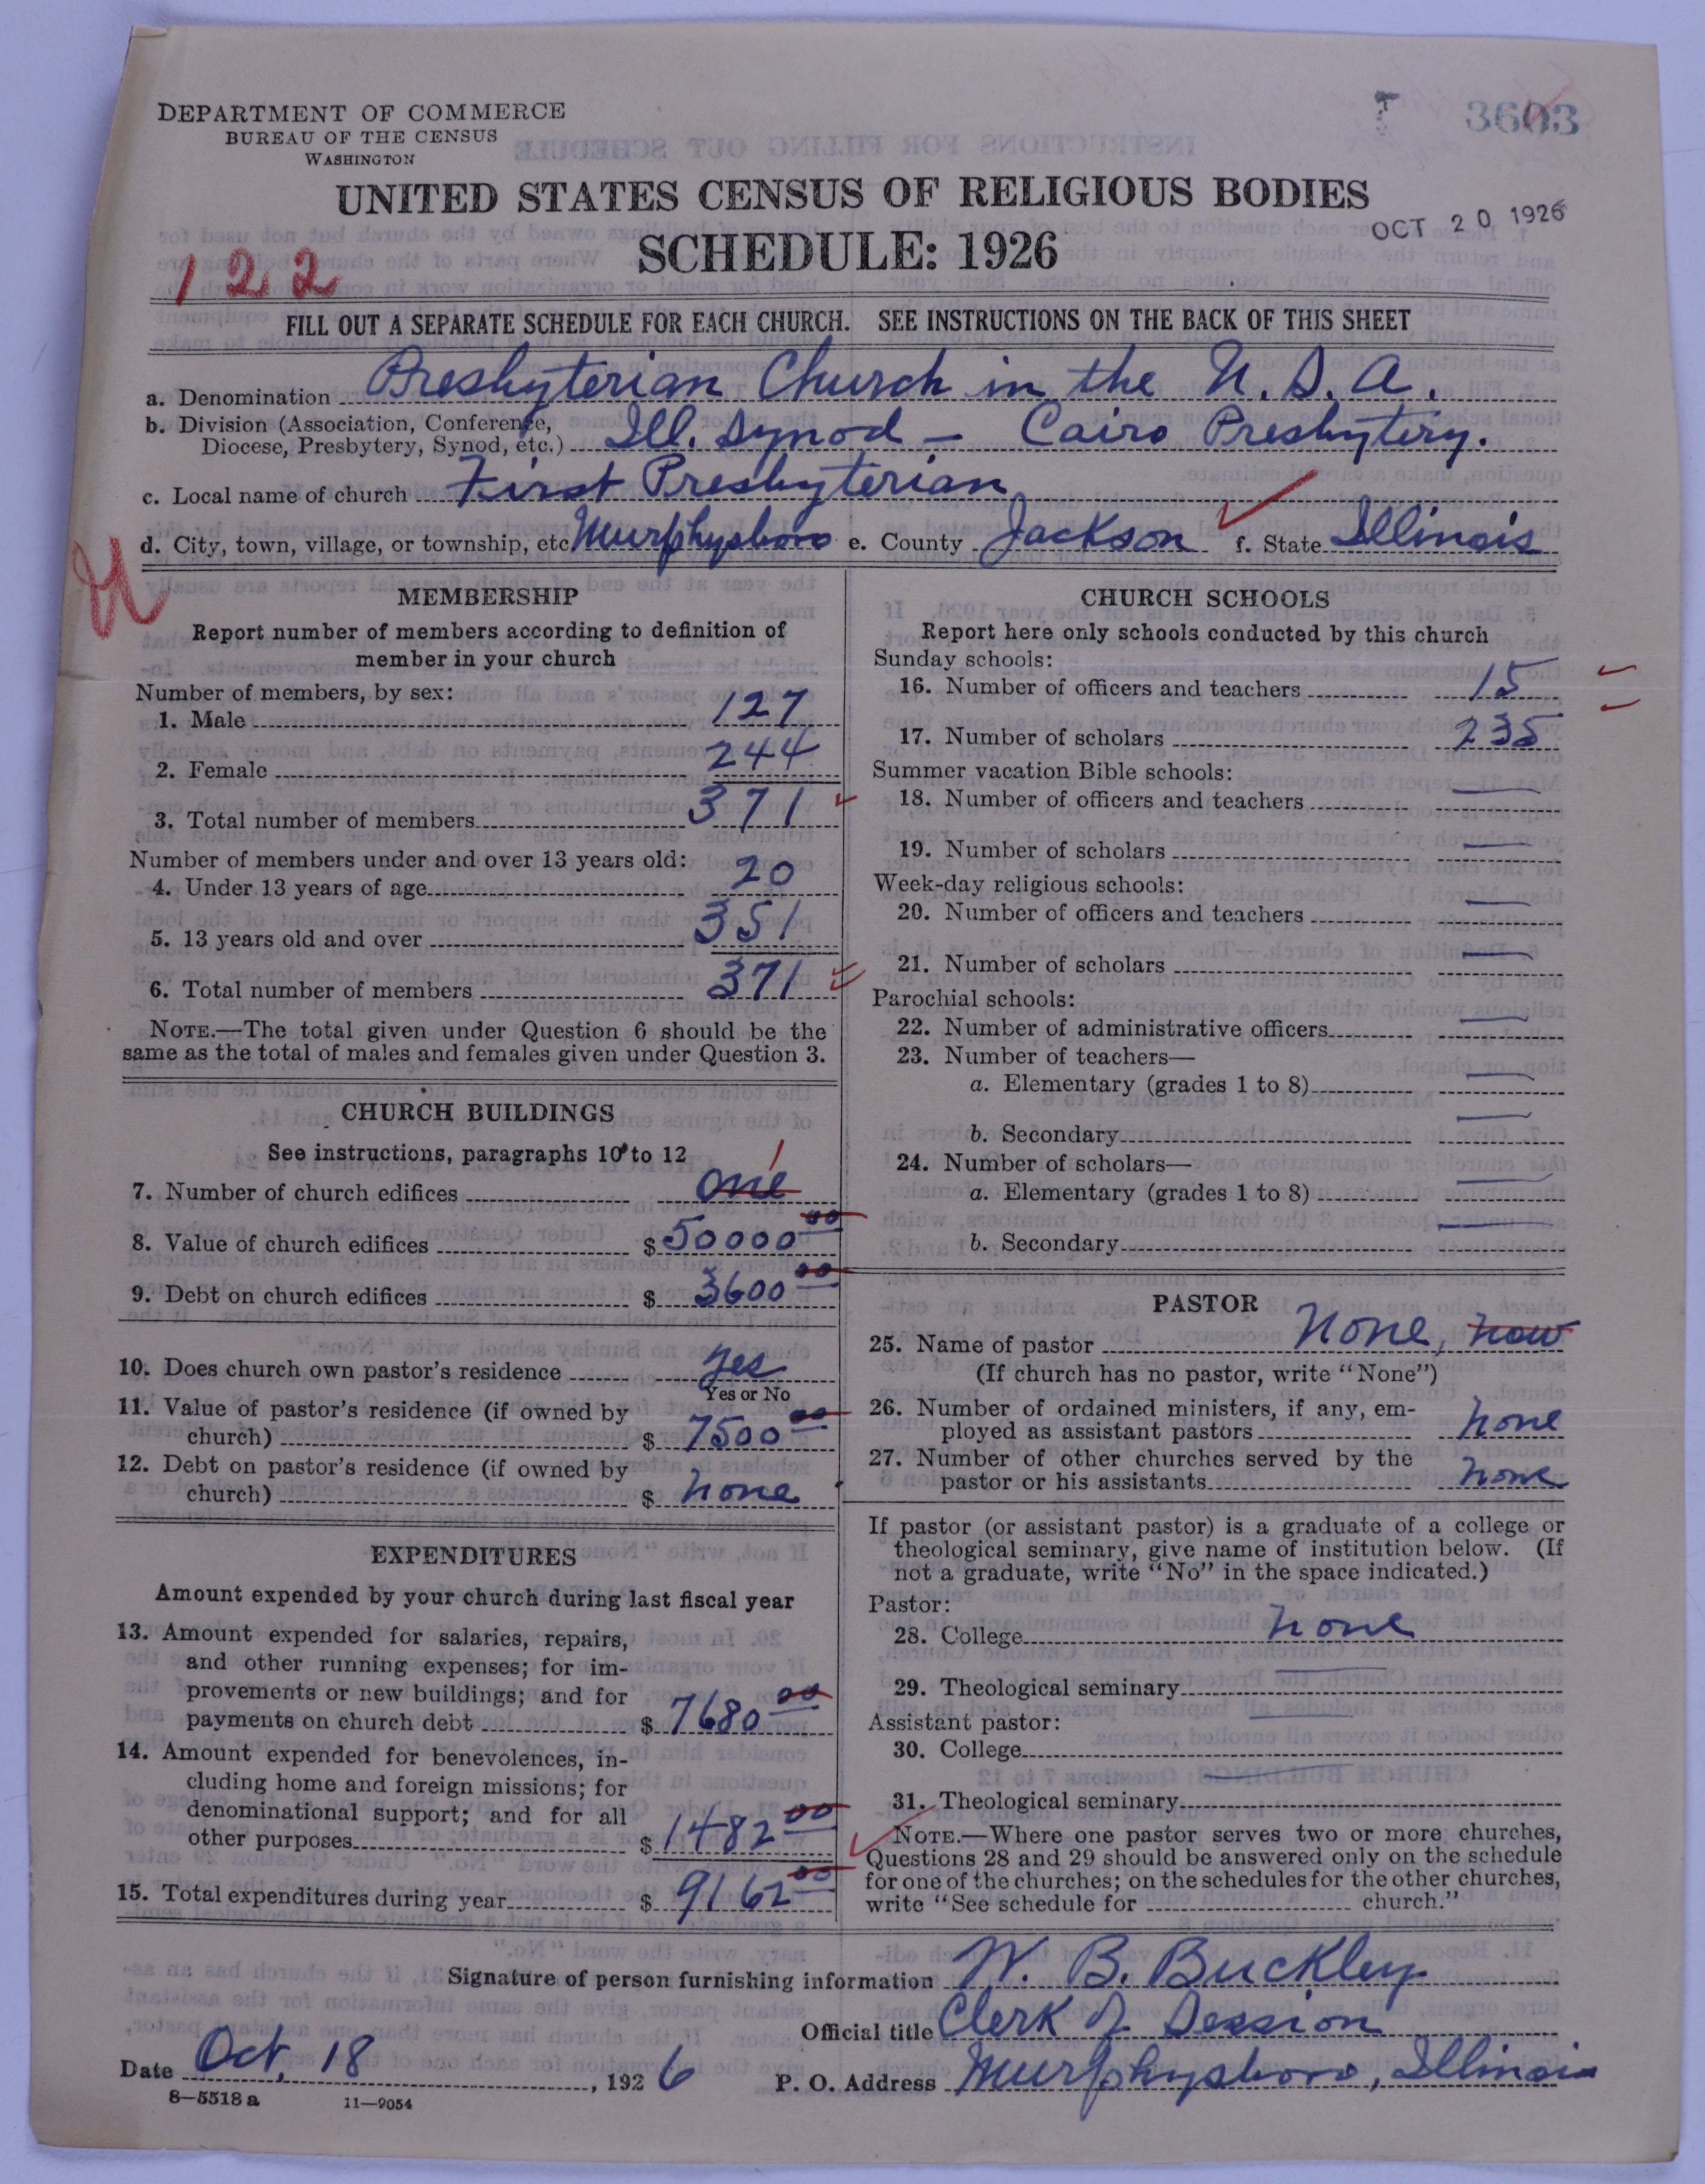 DEPARTMENT OF COMMERCE
BUREAU OF THE CENSUS
WASHINGTON
3603
UNITED STATES CENSUS OF RELIGIOUS BODIES
OCT 20 1926
SCHEDULE: 1926
122
FILL OUT A SEPARATE SCHEDULE FOR EACH CHURCH. SEE INSTRUCTIONS ON THE BACK OF THIS SHEET
a. Denomination Presbyterian Church in the U.S.A.
b. Division (Association, Conference,
Diocese, Presbytery, Synod, etc.) Ill. Synod – Cairo Presbytery.
c. Local name of church First Presbyterian
d. City, town, village, or township, etc Murphysboro e. County Jackson f. State Illinois
MEMBERSHIP
Report number of members according to definition of
member in your church
Number of members, by sex:
1. Male 127
2. Female 244
3. Total number of members 371
Number of members under and over 13 years old:
4. Under 13 years of age 20
5. 13 years old and over 351
6. Total number of members 371
NOTE.—The total given under Question 6 should be the
same as the total of males and females given under Question 3.
CHURCH BUILDINGS
See instructions, paragraphs 10 to 12
7. Number of church edifices one 1
8. Value of church edifices $50000 00
9. Debt on church edifices $ 3600 00
10. Does church own pastor's residence yes
Yes or No
11. Value of pastor's residence (if owned by
church) $ 7500 00
12. Debt on pastor's residence (if owned by
church) $ none
EXPENDITURES
Amount expended by your church during last fiscal year
13. Amount expended for salaries, repairs,
and other running expenses; for im-
provements or new buildings; and for
payments on church debt $ 7680 00
14. Amount expended for benevolences, in-
cluding home and foreign missions; for
denominational support; and for all
other purposes $ 1482 00
15. Total expenditures during year $ 9162 00
CHURCH SCHOOLS
Report here only schools conducted by this church
Sunday schools:
16. Number of officers and teachers 15
17. Number of scholars 235
Summer vacation Bible schools:
18. Number of officers and teachers —
19. Number of scholars —
Week-day religious schools:
20. Number of officers and teachers —
21. Number of scholars —
Parochial schools:
22. Number of administrative officers —
23. Number of teachers—
a. Elementary (grades 1 to 8) —
b. Secondary —
24. Number of scholars—
a. Elementary (grades 1 to 8) —
b. Secondary —
PASTOR
25. Name of pastor None, now
(If church has no pastor, write "None")
26. Number of ordained ministers, if any, em-
ployed as assistant pastors none
27. Number of other churches served by the
pastor or his assistants none
If pastor (or assistant pastor) is a graduate of a college or
theological seminary, give name of institution below. (If
not a graduate, write "No" in the space indicated.)
Pastor:
28. College none
29. Theological seminary —
Assistant pastor:
30. College —
31. Theological seminary —
NOTE.—Where one pastor serves two or more churches,
Questions 28 and 29 should be answered only on the schedule
for one of the churches; on the schedules for the other churches,
write "See schedule for church."
Signature of person furnishing information W. B. Buckley
Official title Clerk of Session
Date Oct, 18, 1926 P. O. Address Murphysboro, Illinois
8-5518 a 11—9054